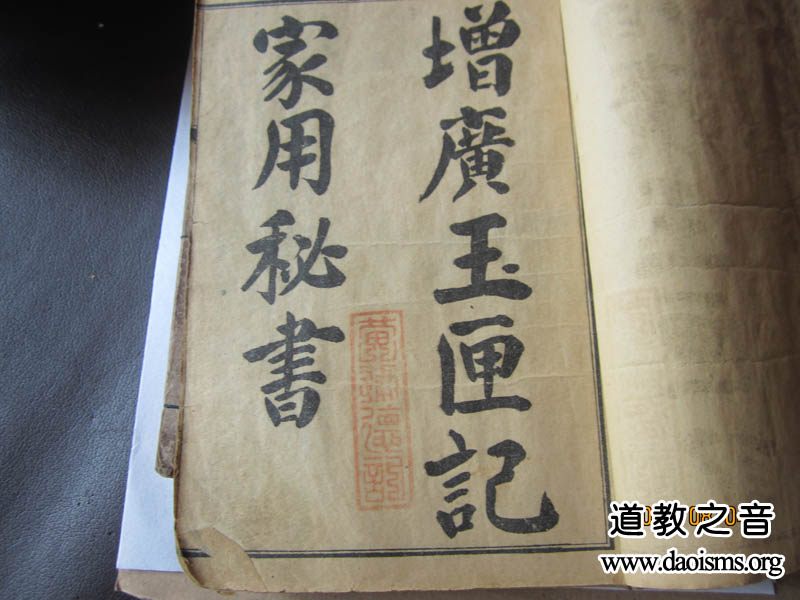 增廣玉匣記
家用秘書
道教之音
www.daoisms.org